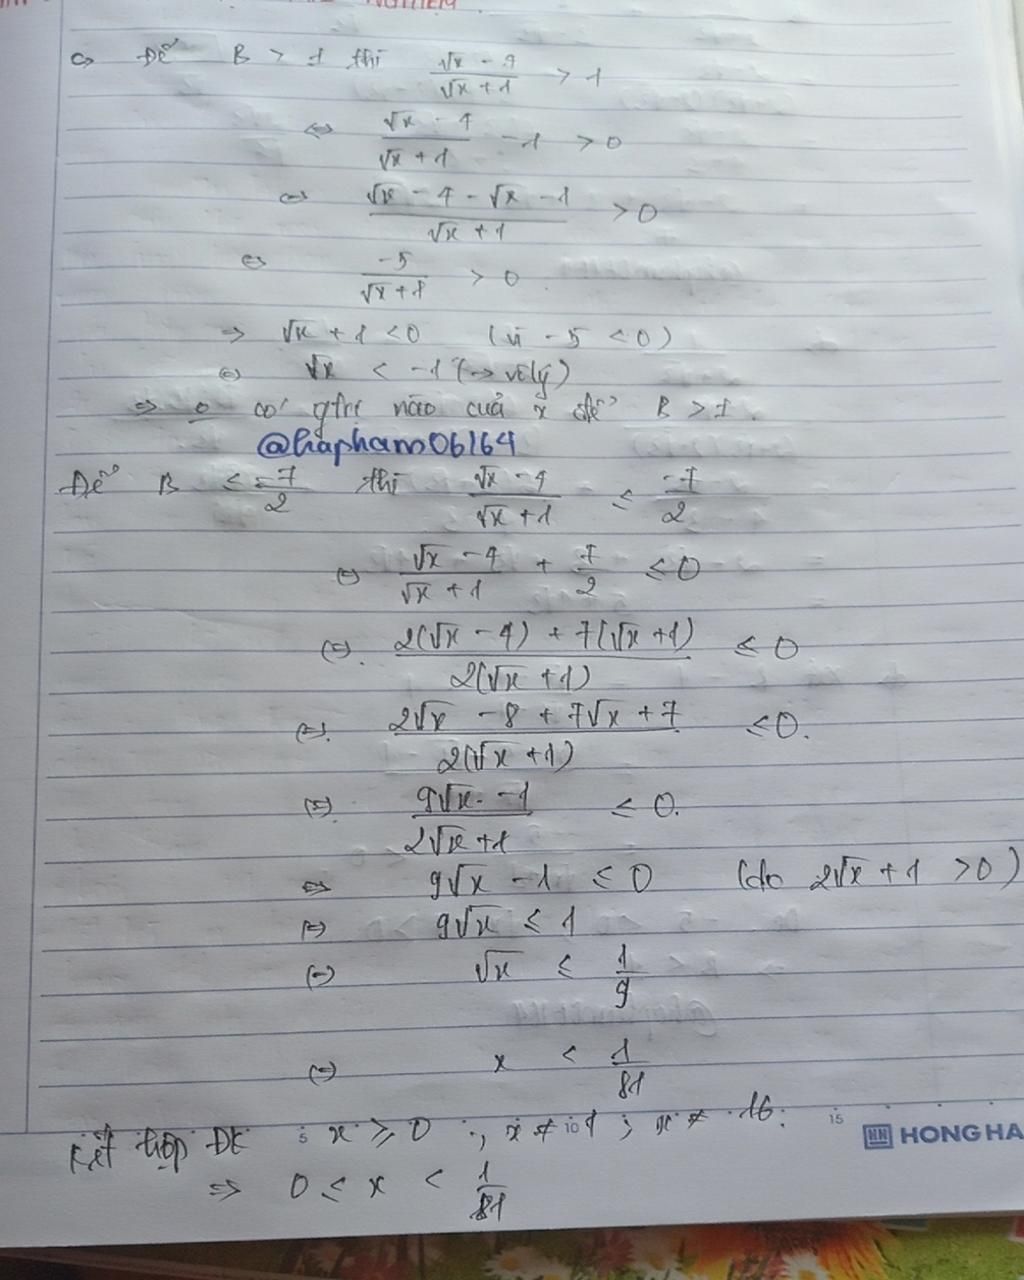 c, Để B > 1 thì (√x - 4)/(√x + 1) > 1
<=> (√x - 4)/(√x + 1) - 1 > 0
<=> (√x - 4 - √x - 1)/(√x + 1) > 0
<=> -5/(√x + 1) > 0
=> √x + 1 < 0 (vì -5 < 0)
<=> √x < -1 (-> vô lý)
=> 0 có gtrị nào của x để B > 1.
@hapham06164
Để B ≤ -7/2 thì (√x - 4)/(√x + 1) ≤ -7/2
(=) (√x - 4)/(√x + 1) + 7/2 ≤ 0
(=). (2(√x - 4) + 7(√x + 1))/(2(√x + 1)) ≤ 0
(=). (2√x - 8 + 7√x + 7)/(2(√x + 1)) ≤ 0.
(=). (9√x - 1)/(2√x + 1) ≤ 0.
<=> 9√x - 1 ≤ 0 (do 2√x + 1 > 0)
(=) 9√x ≤ 1
(=) √x ≤ 1/9
(=) x < 1/81
5 10 15
Kết hợp ĐK x ≥ 0 ; x ≠ 1 ; x ≠ 16.
HH HONG HA
=> 0 ≤ x < 1/81